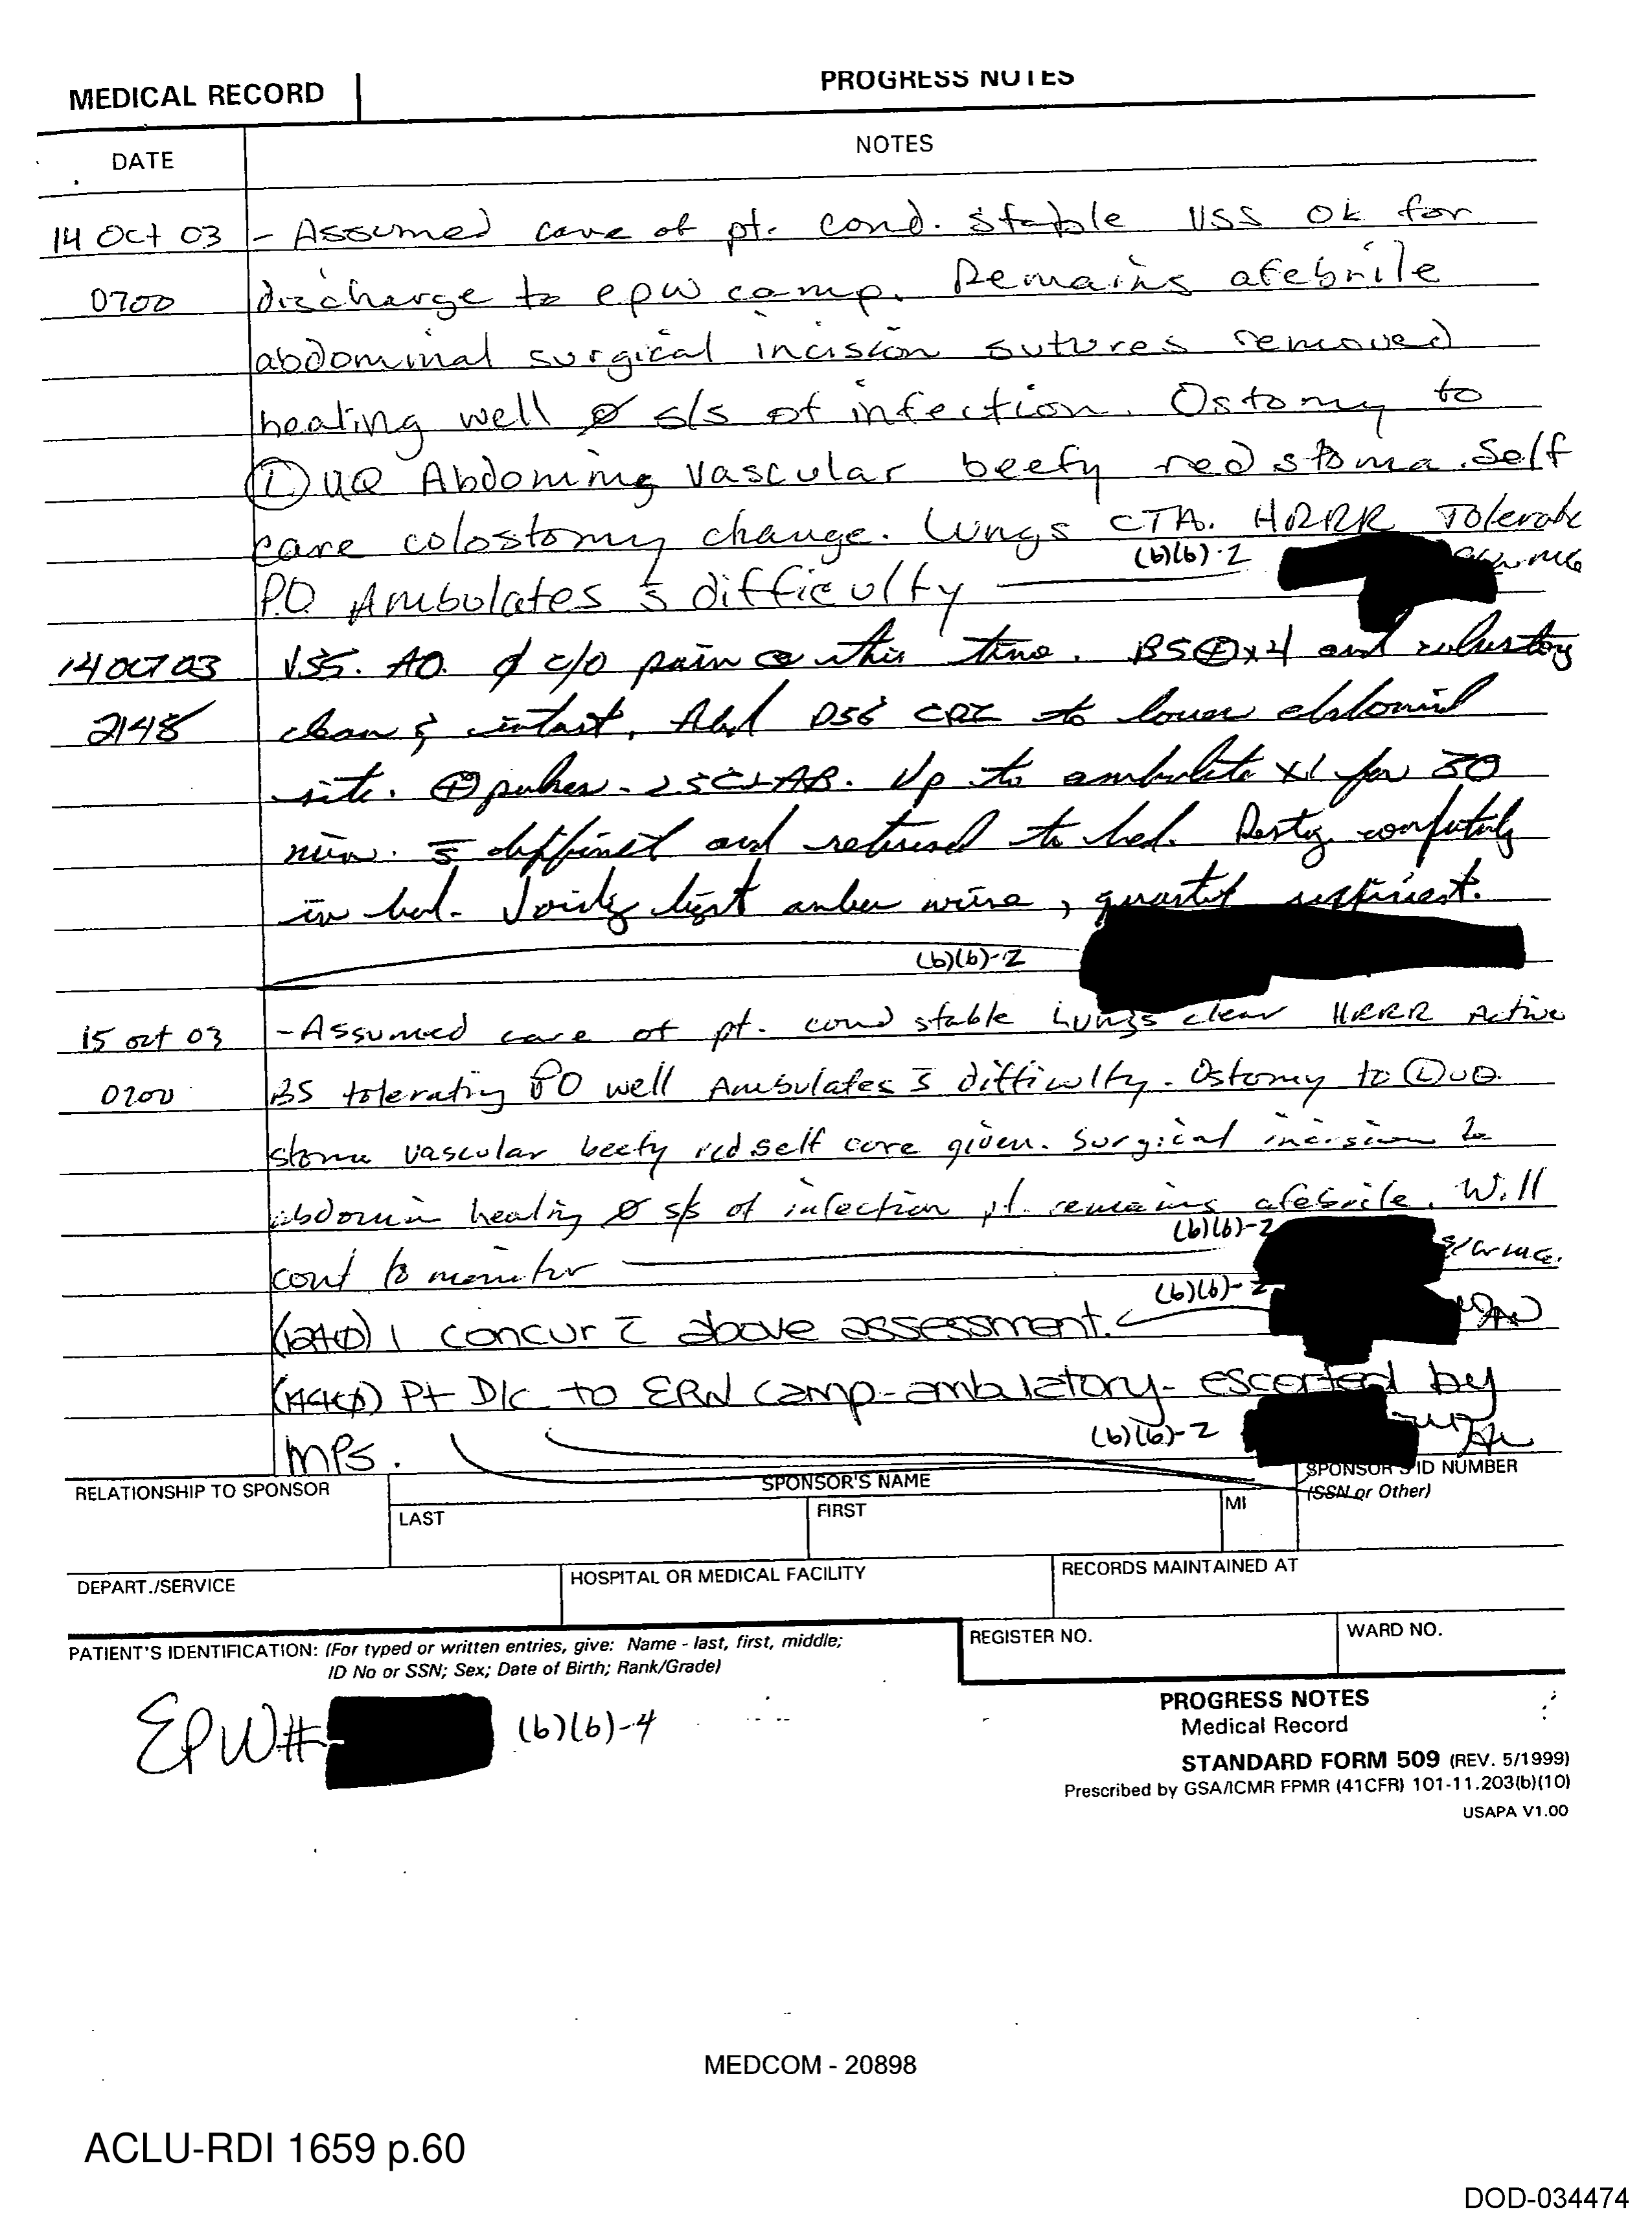 MEDICAL RECORD
PROGRESS NOTES
DATE
NOTES
14 Oct 03 - Assumed care of pt. cond. stable VSS ok for
0700 discharge to epw camp. Remains afebrile
abdominal surgical incision sutures removed
healing well ∅ s/s of infection. Ostomy to
Ⓛ UQ Abdoming vascular beefy red stoma. Self
care colostomy change. Lungs CTA. HRRR Tolerate
P.O. Ambulates s̄ difficulty (b)(6)-2
14 OCT 03 VSS. AO. ∅ c/o pain @ this time. BS⊕x4 and
2148 clean & intact. Abd DSG CDI to lower abdominal
site. ⊕ pulses. Up to ambulate x1 for 30
min. s̄ and returned to bed. Resting comfortably
in bed. Voiding light amber urine, quantity sufficient.
(b)(6)-2
15 oct 03 - Assumed care of pt. cond stable Lungs clear HRRR Active
0700 BS tolerating PO well Ambulates s̄ difficulty. Ostomy to Ⓛ UQ.
stoma vascular beefy red self care given. Surgical incision to
abdomin healing ∅ s/s of infection pt. remains afebrile. Will
cont to monitor (b)(6)-2
I concur c̄ above assessment. (b)(6)-2
Pt D/c to EPW camp-ambulatory- escorted by
MPs. (b)(6)-2
RELATIONSHIP TO SPONSOR
SPONSOR'S NAME
SPONSOR'S ID NUMBER
(SSN or Other)
LAST
FIRST
MI
DEPART./SERVICE
HOSPITAL OR MEDICAL FACILITY
RECORDS MAINTAINED AT
PATIENT'S IDENTIFICATION: (For typed or written entries, give: Name - last, first, middle;
ID No or SSN; Sex; Date of Birth; Rank/Grade)
REGISTER NO.
WARD NO.
EPW# (b)(6)-4
PROGRESS NOTES
Medical Record
STANDARD FORM 509 (REV. 5/1999)
Prescribed by GSA/ICMR FPMR (41CFR) 101-11.203(b)(10)
USAPA V1.00
MEDCOM - 20898
ACLU-RDI 1659 p.60
DOD-034474